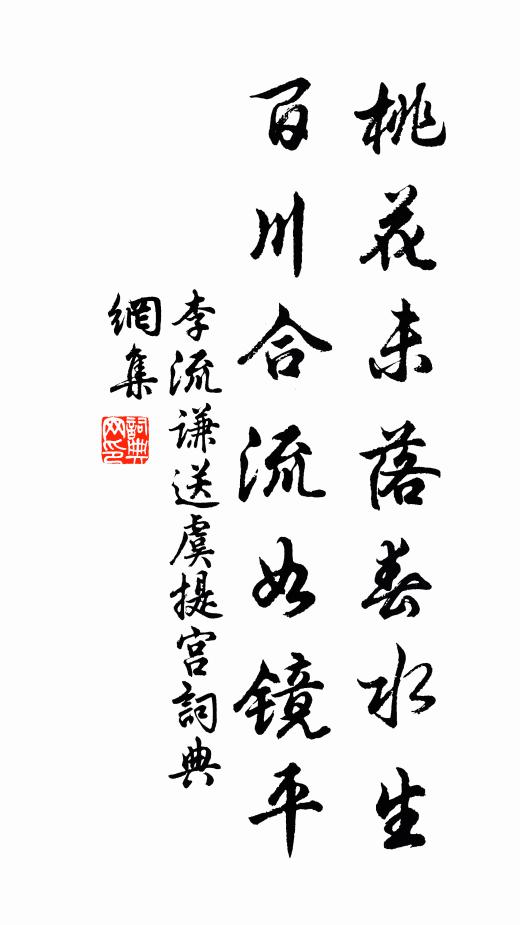 桃花未落春水生
百川合流如镜平
李流谦送虞提宫詞典
網集
詞典
网印